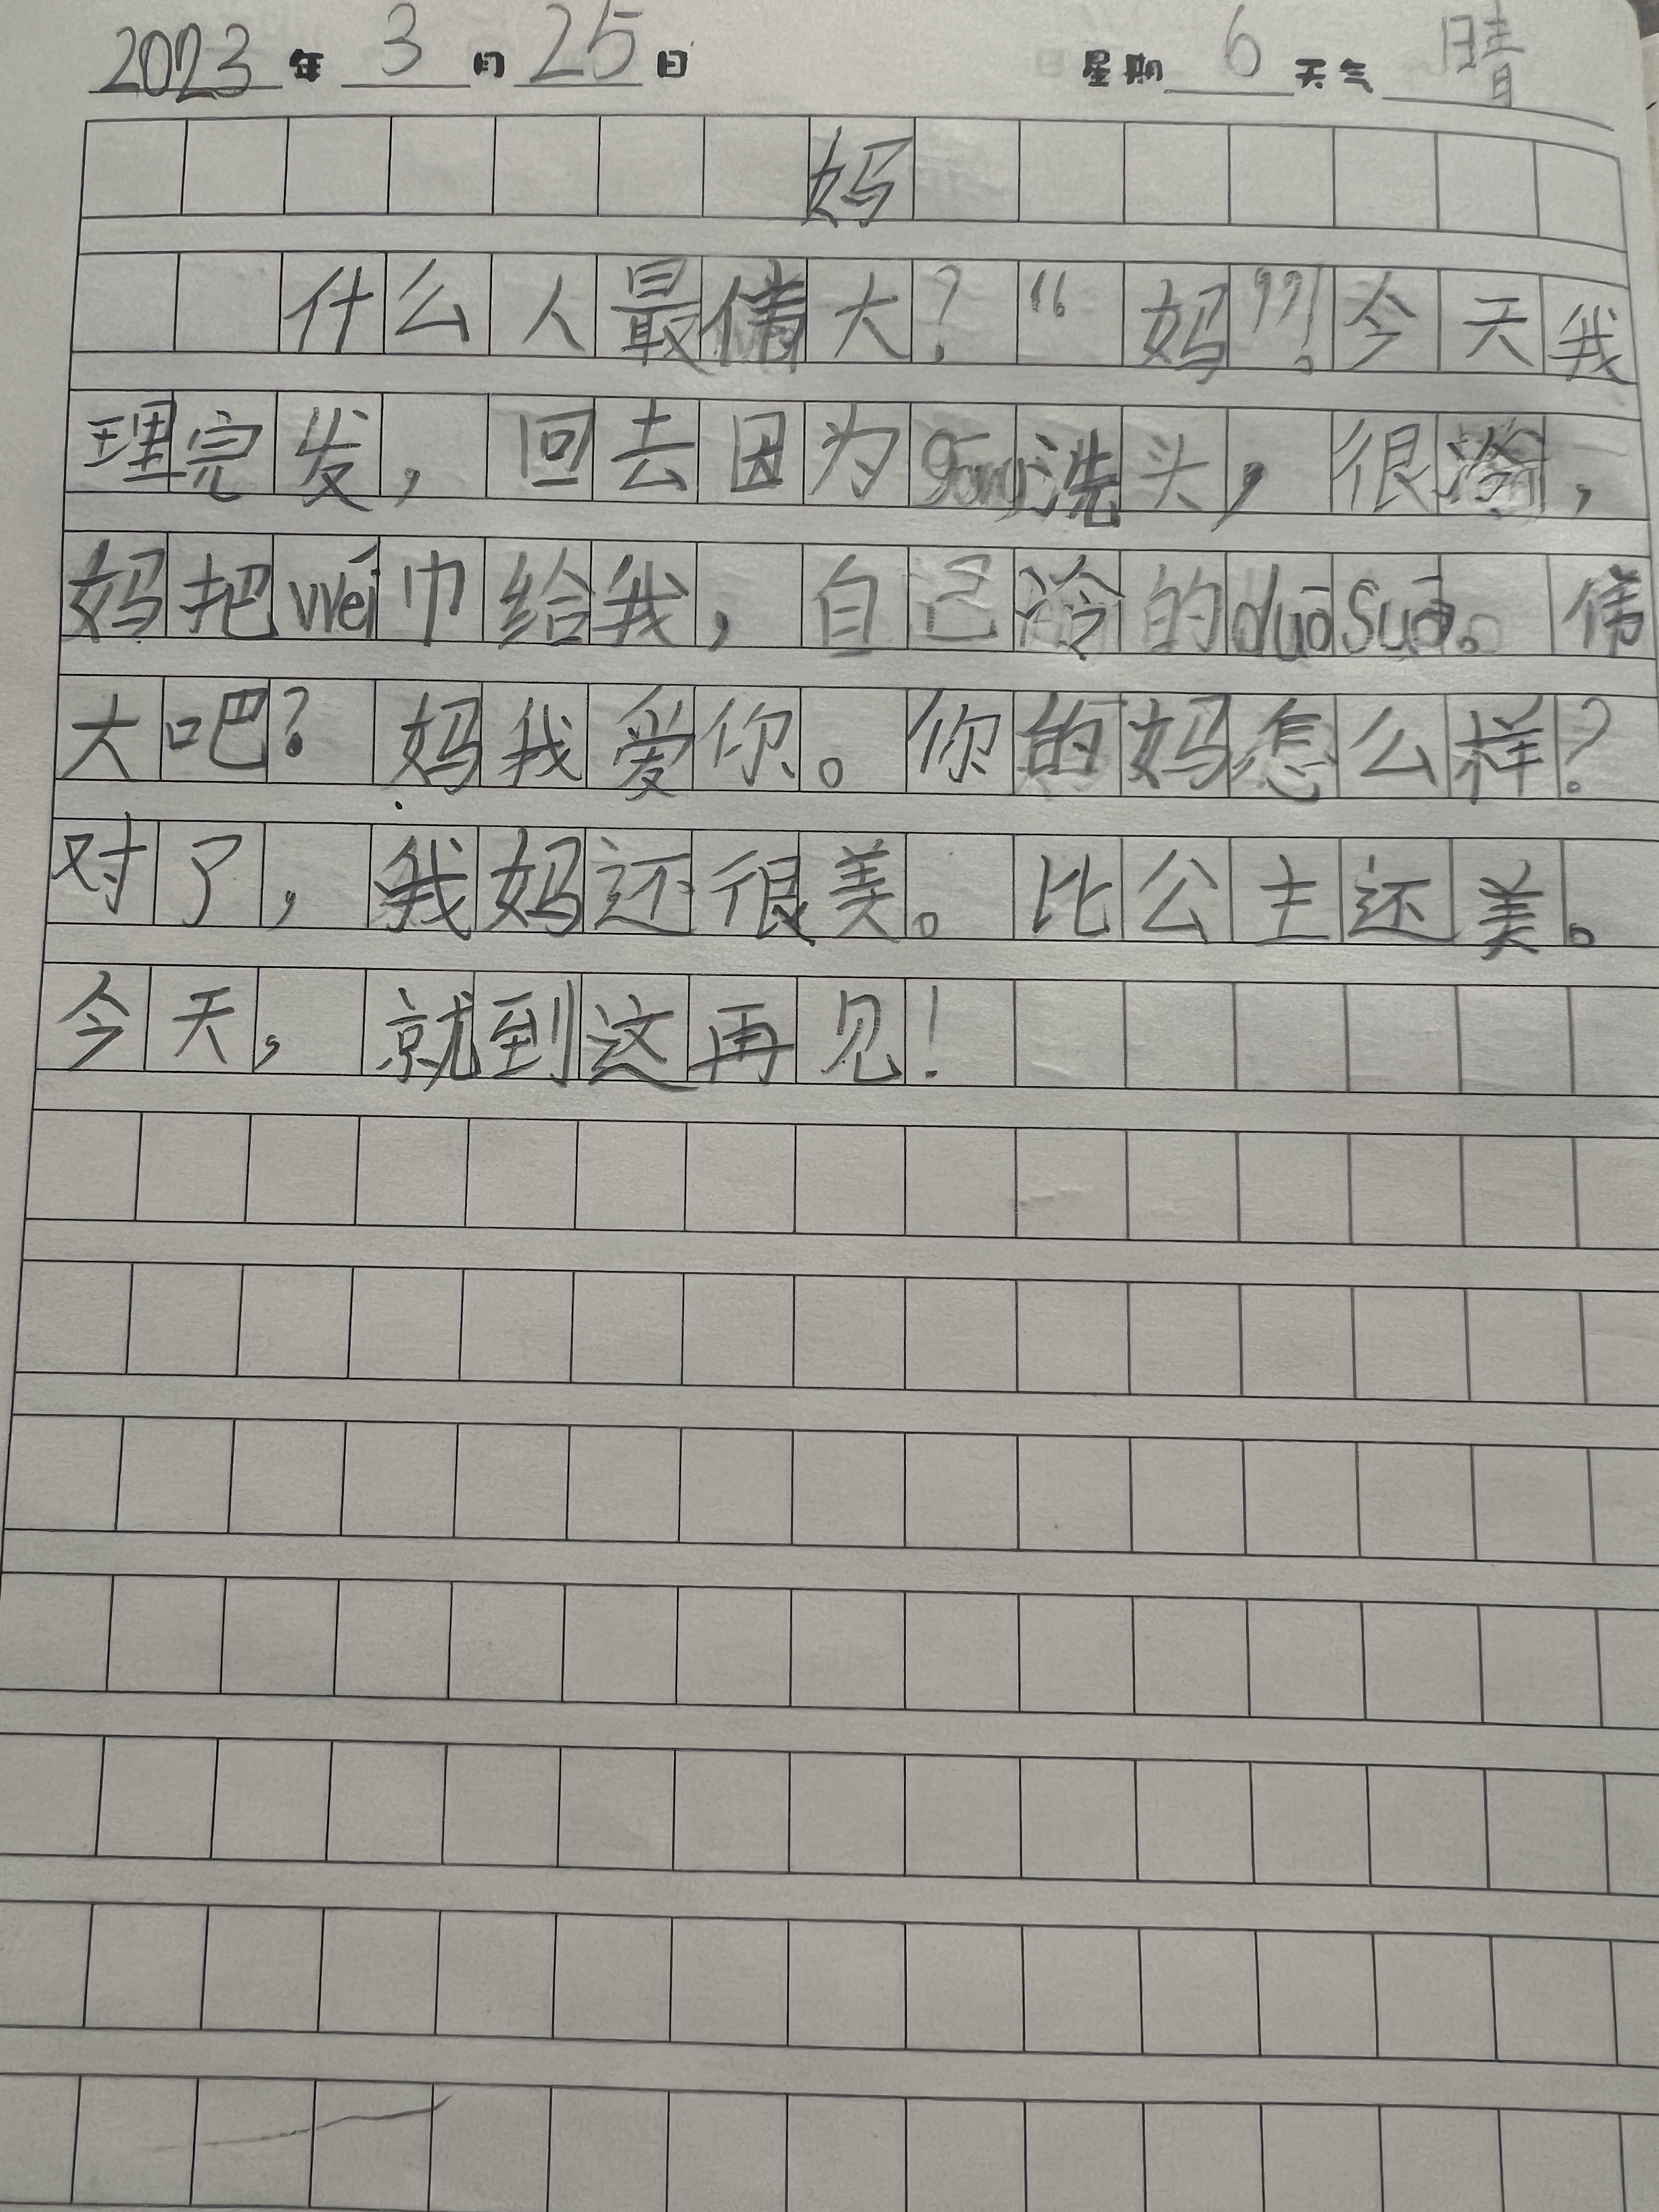 2023年3月25日 星期6天气晴
妈
什么人最偉大？“妈”！今天我
理完发，回去因为gāng洗头，很冷，
妈把wéi巾给我，自己冷的duōsuō。伟
大吧？妈我爱你。你的妈怎么样？
对了，我妈还很美。比公主还美。
今天，就到这再见！